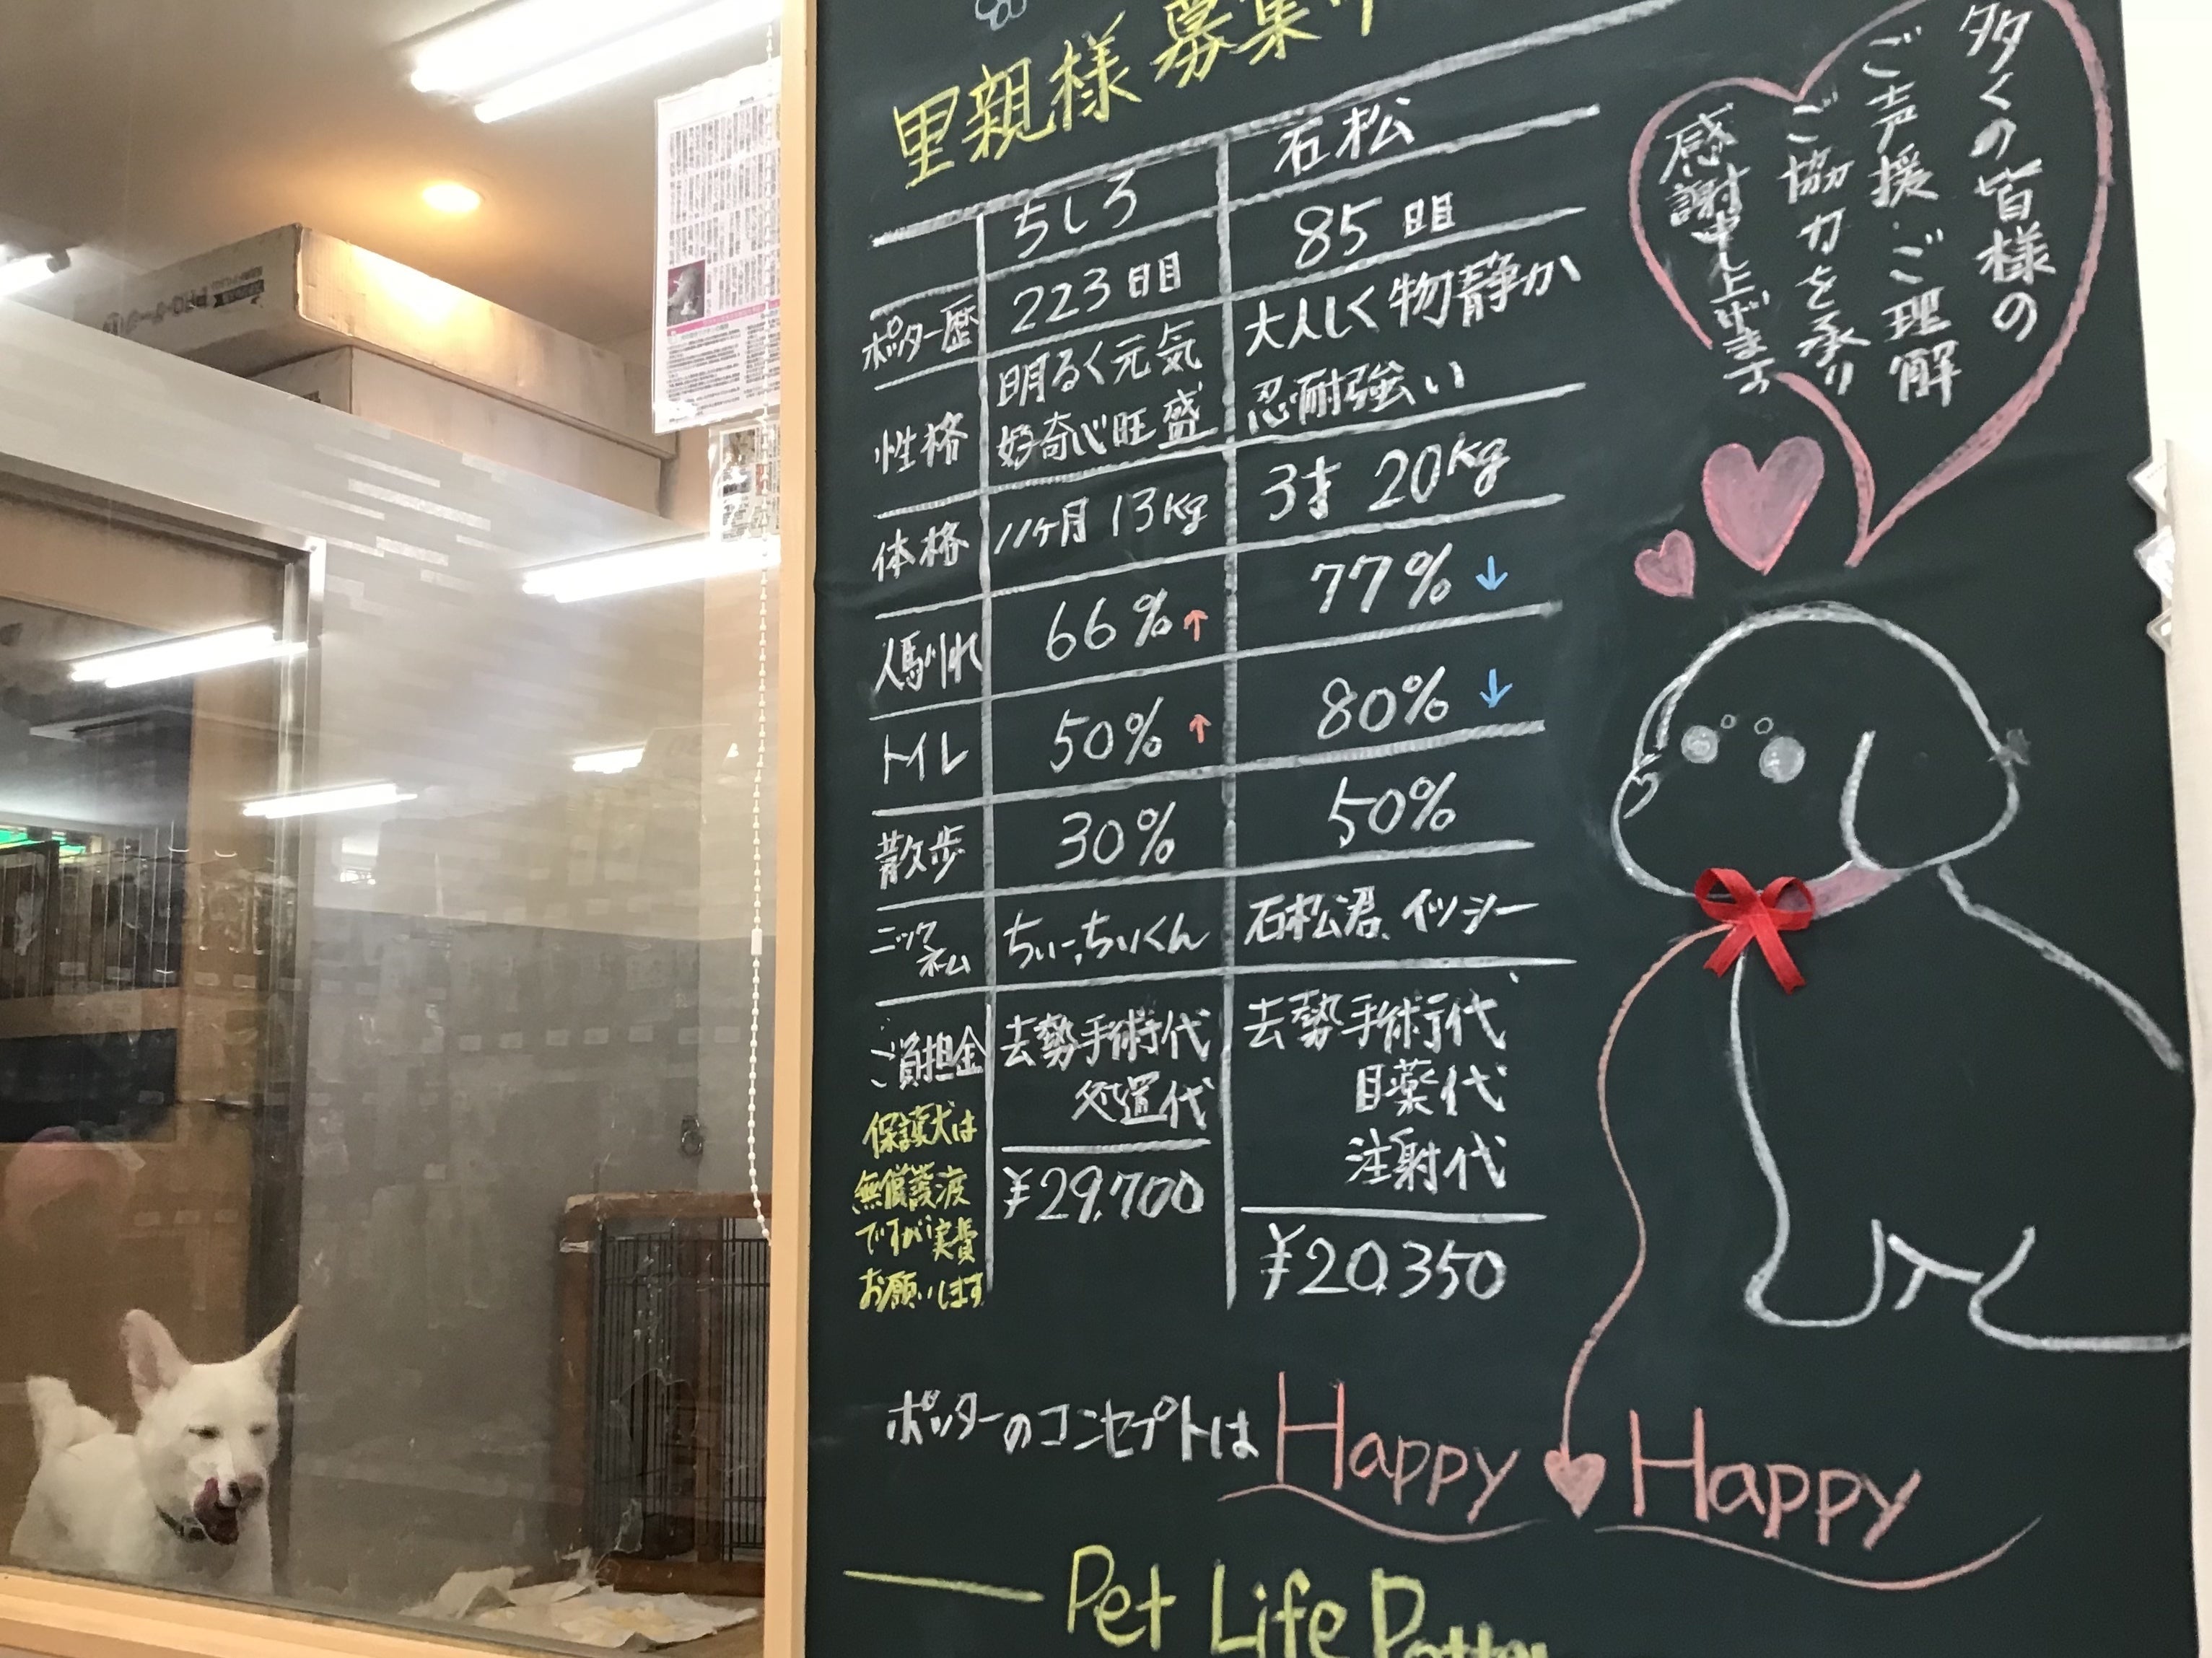 里親様募集中
ちしろ 石松
ポッター歴 223日目 85日目
性格 明るく元気 大人しく物静か
好奇心旺盛 忍耐強い
体格 11ヶ月 13kg 3才 20kg
人馴れ 66%↑ 77%↓
トイレ 50%↑ 80%↓
散歩 30% 50%
ニック ちぃー、ちぃくん 石松君、イッシー
ネーム
ご負担金 去勢手術代 去勢手術代
処置代 目薬代
注射代
¥29,700 ¥20,350
保護犬は
無償譲渡
ですが実費
お願いします
多くの皆様の
ご声援・ご理解
ご協力を承り
感謝申し上げます
ポッターのコンセプトは Happy Happy
Pet Life Potter